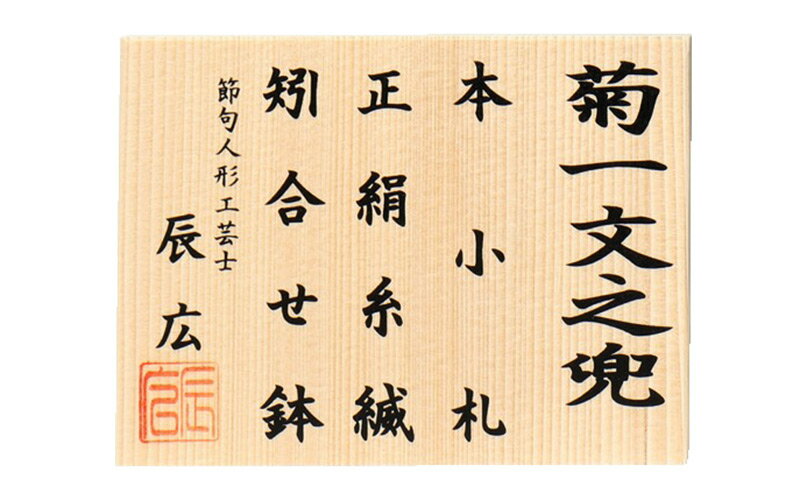 菊一文之兜
本小札
正絹糸縅
矧合せ鉢
節句人形工芸士
辰広
辰広